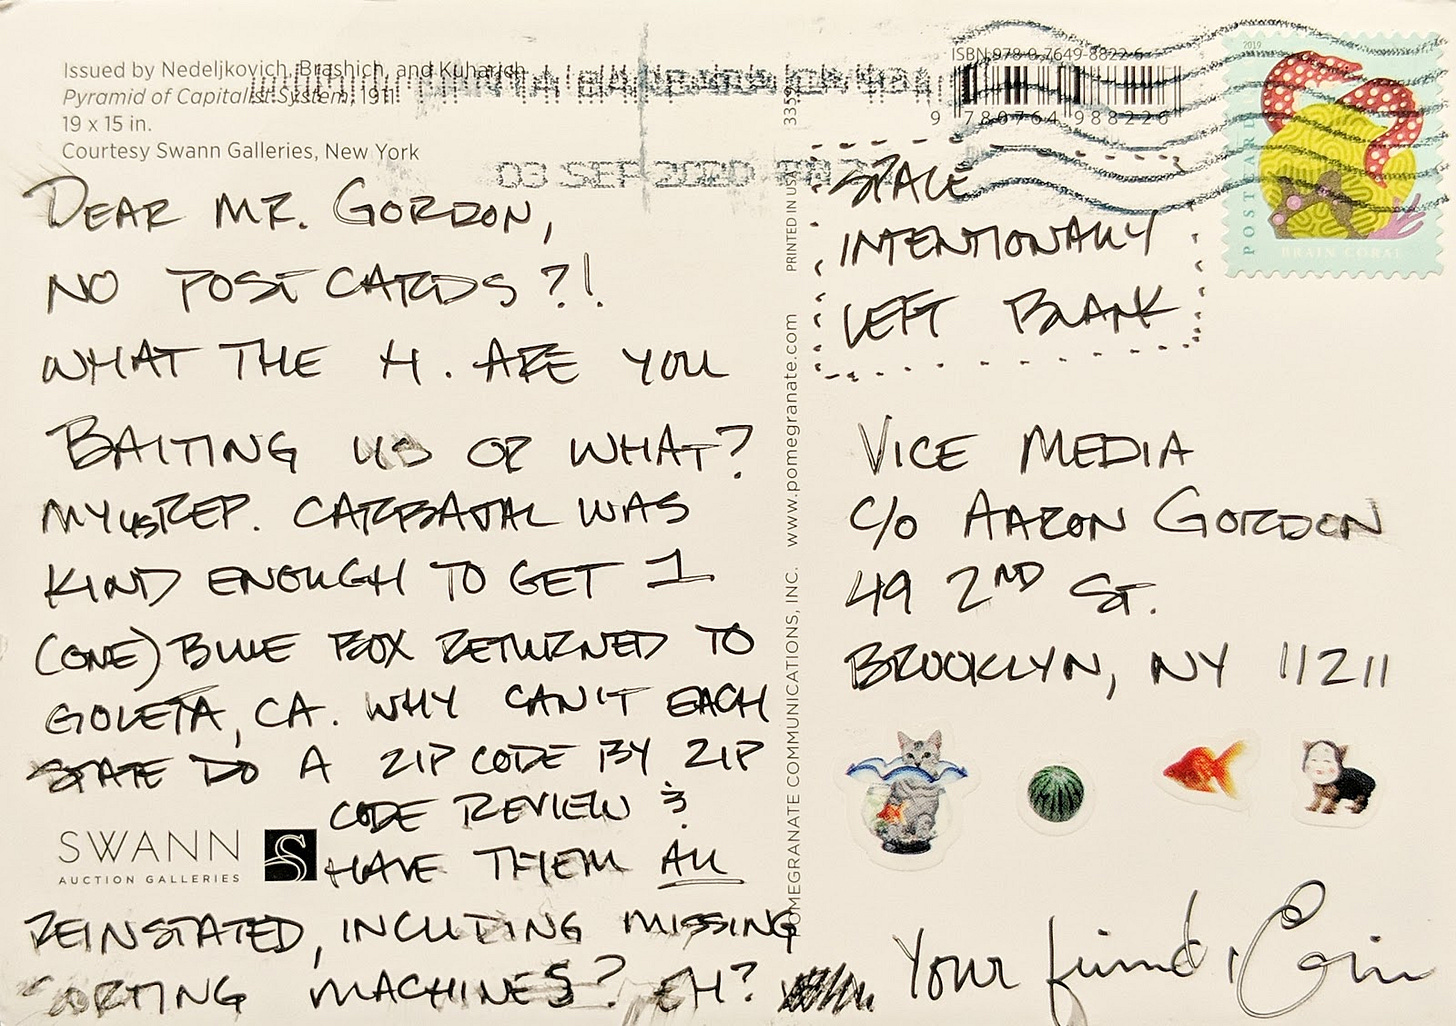 Issued by Nedeljkovich, Brashich, and Kuharich
Pyramid of Capitalist System, 1911
19 x 15 in.
Courtesy Swann Galleries, New York
03 SEP 2020 PM
DEAR MR. GORDON,
NO POSTCARDS?!
WHAT THE H. ARE YOU
BAITING US OR WHAT?
MY US REP. CARBAJAL WAS
KIND ENOUGH TO GET 1
(ONE) BLUE BOX RETURNED TO
GOLETA, CA. WHY CAN'T EACH
STATE DO A ZIP CODE BY ZIP
CODE REVIEW &
HAVE THEM ALL
REINSTATED, INCLUDING MISSING
SORTING MACHINES? EH?
SWANN
AUCTION GALLERIES
S
POMEGRANATE COMMUNICATIONS, INC. www.pomegranate.com PRINTED IN USA
ISBN 978-0-7649-8822-6
9 780764 988226
2019
POSTCARD
BRAIN CORAL
SPACE
INTENTIONALLY
LEFT BLANK
VICE MEDIA
C/O AARON GORDON
49 2ND ST.
BROOKLYN, NY 11211
Your friend,